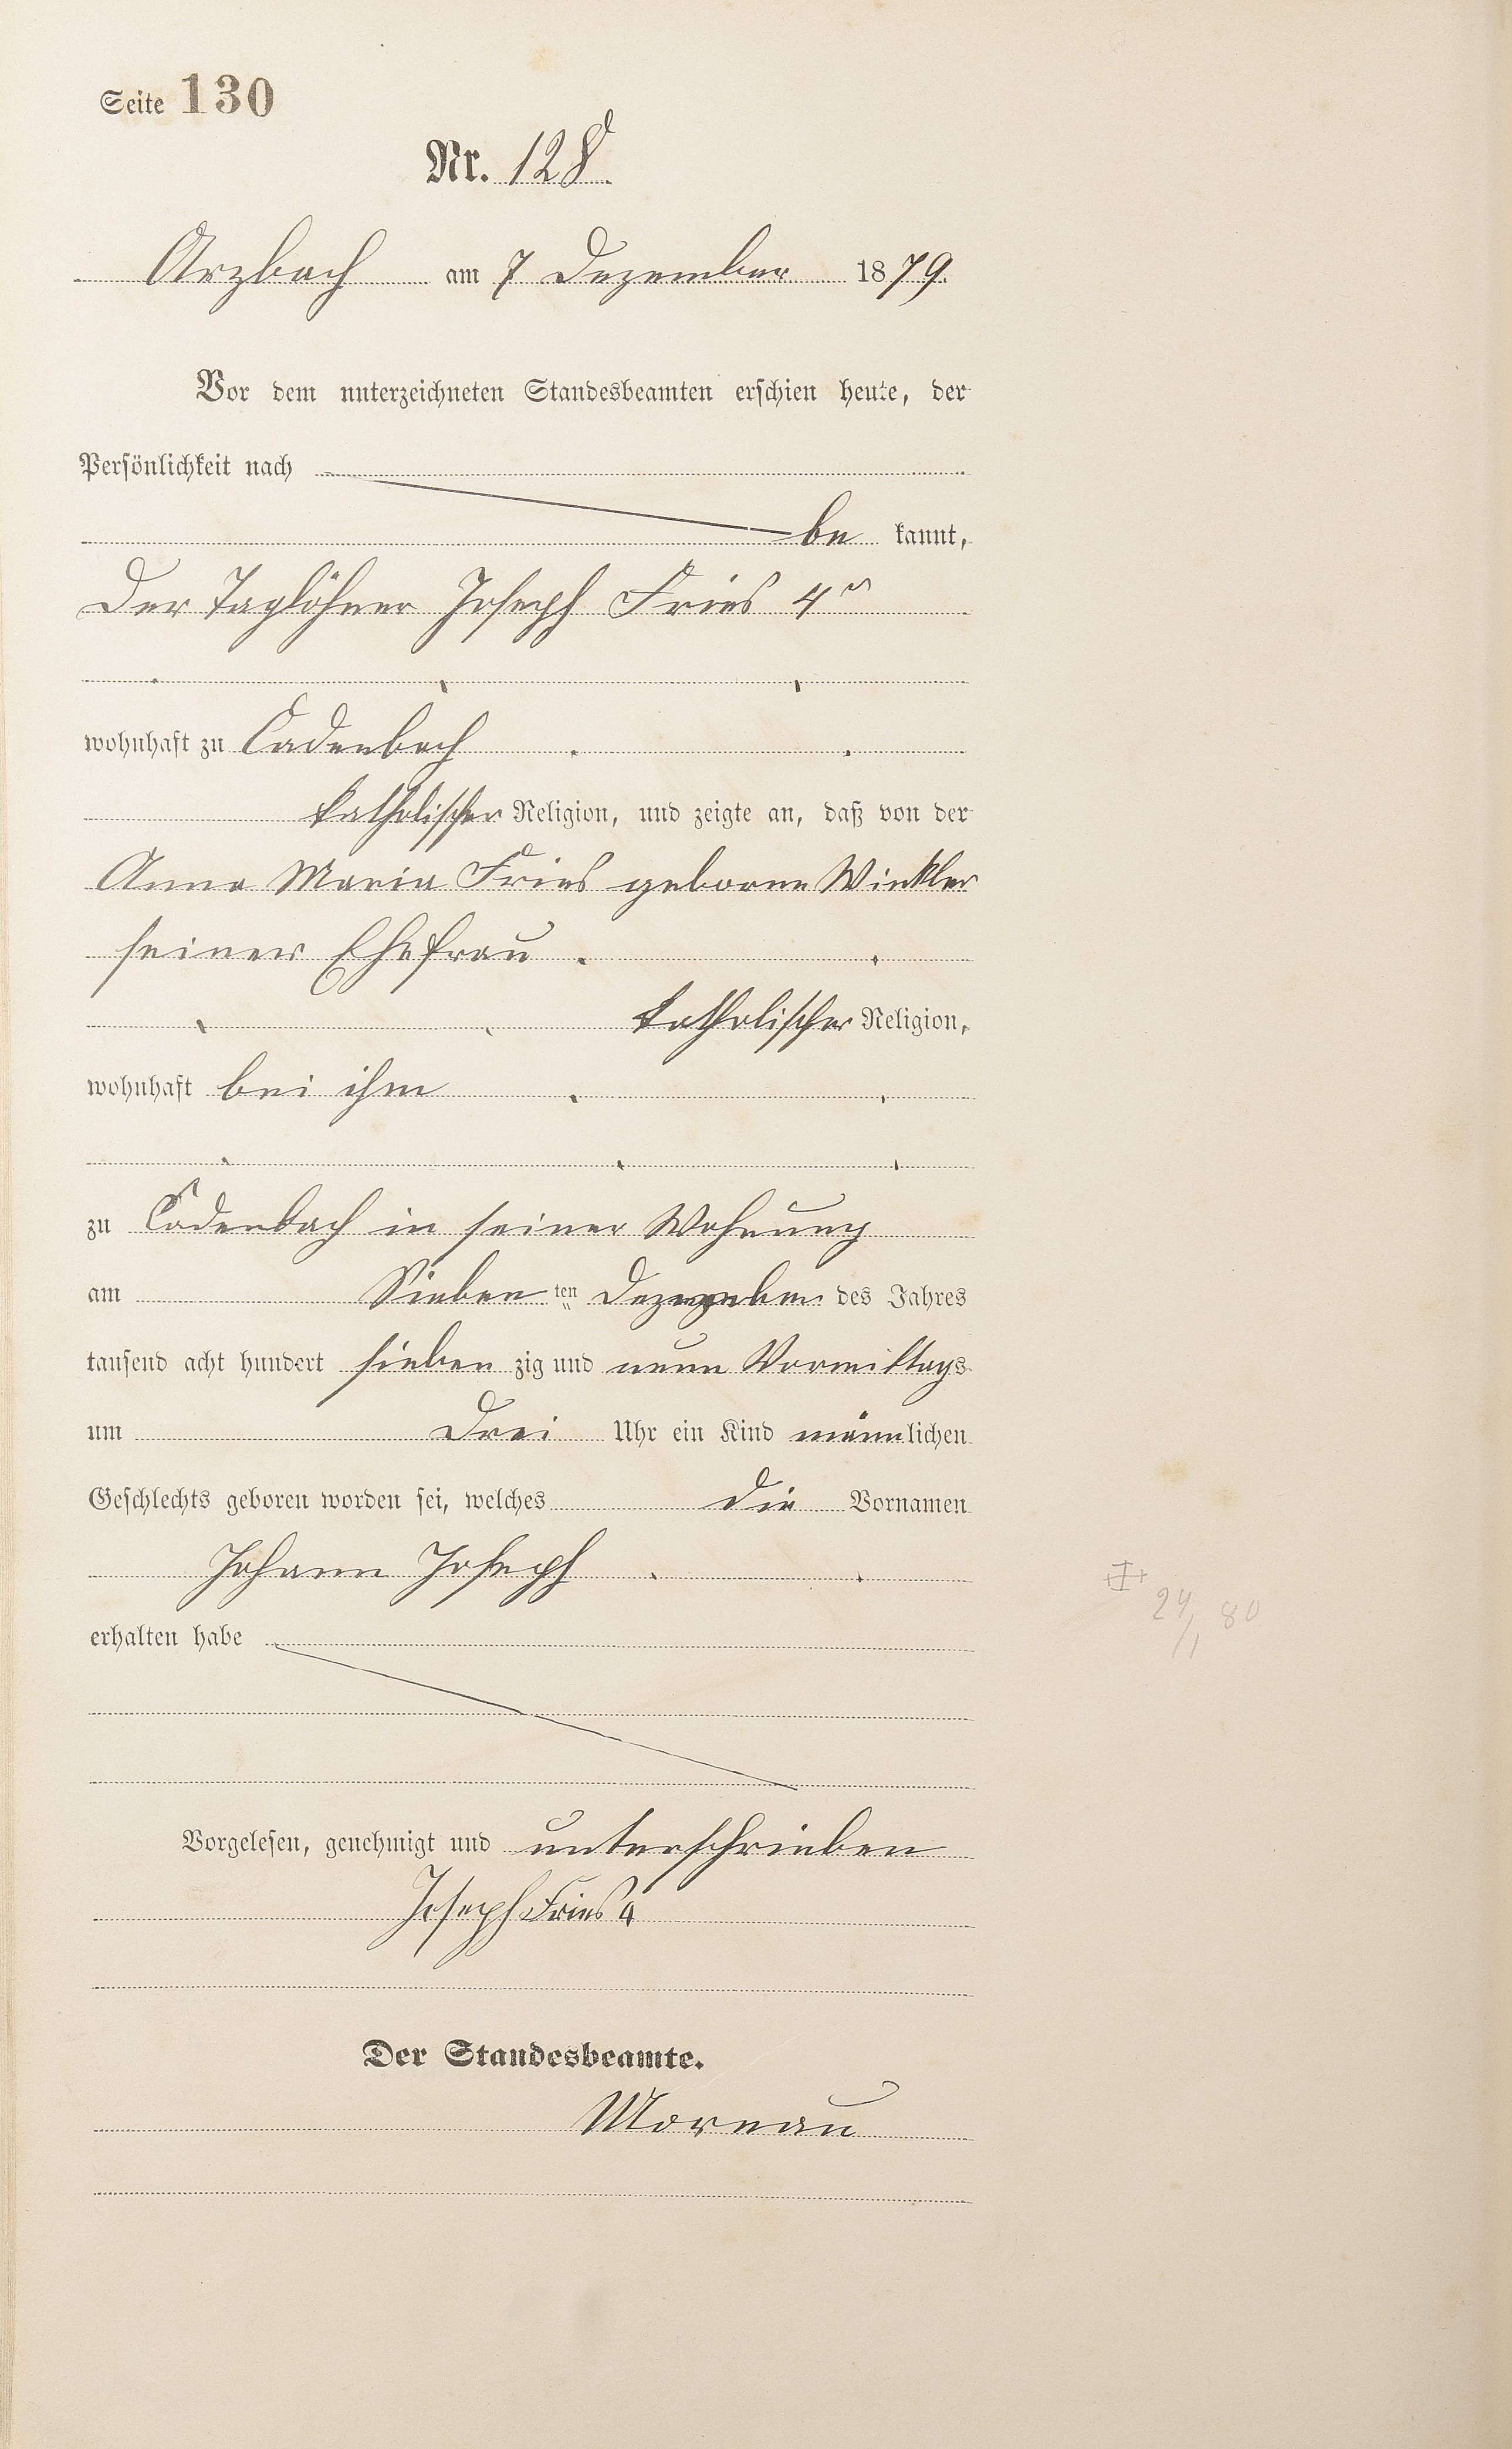 Seite 130
Nr. 128
Arzbach am 7 Dezember 1879.
Vor dem unterzeichneten Standesbeamten erschien heute, der
Persönlichkeit nach
be kannt,
Der Taglöhner Joseph Fries 4r
wohnhaft zu Cadenbach
katholischer Religion, und zeigte an, daß von der
Anna Maria Fries geborne Winkler
seiner Ehefrau
katholischer Religion,
wohnhaft bei ihm
zu Cadenbach in seiner Wohnung
am Sieben ten Dezember des Jahres
tausend acht hundert sieben zig und neun Vormittags
um Drei Uhr ein Kind männlichen
Geschlechts geboren worden sei, welches die Vornamen
Johann Joseph
erhalten habe
24/1 80
Vorgelesen, genehmigt und unterschrieben
Joseph Fries 4
Der Standesbeamte.
Mornau